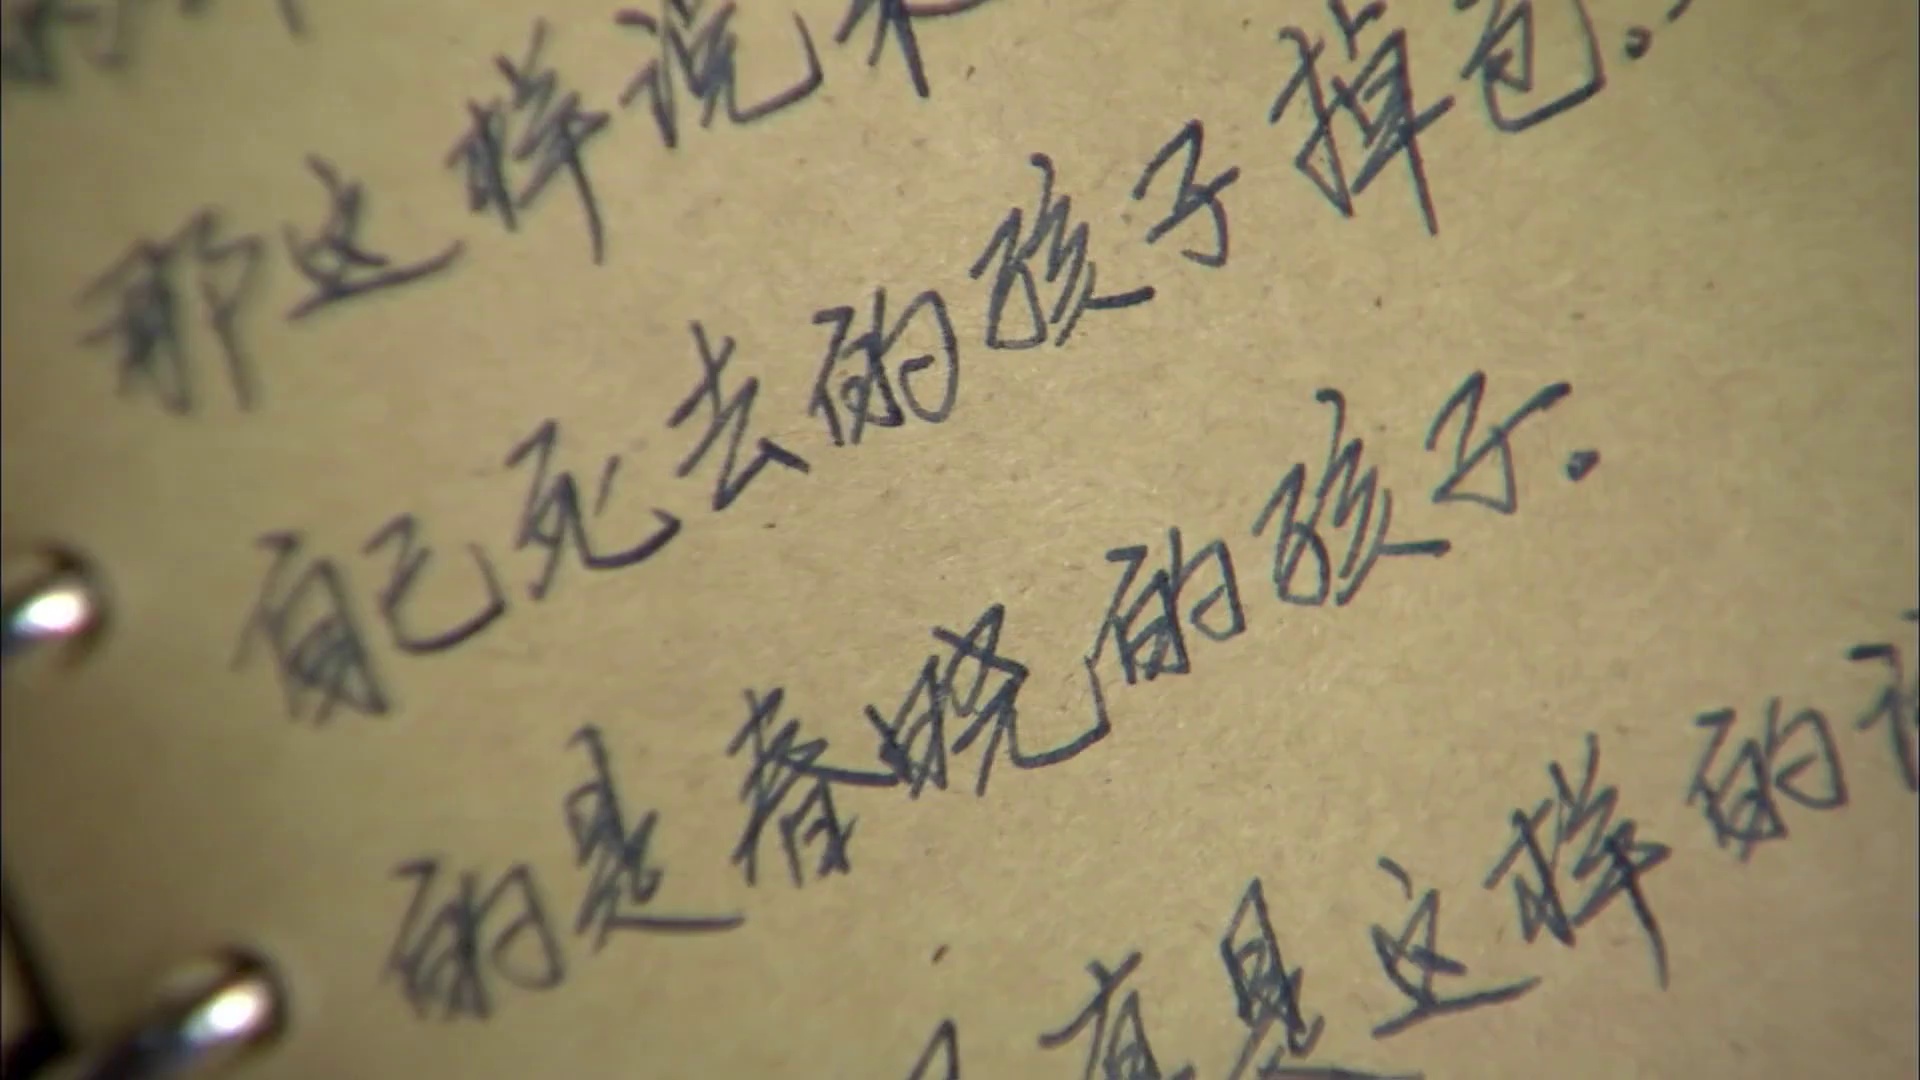 那这样说来
自己死去的孩子掉包.
的是春晓的孩子.
真是这样的